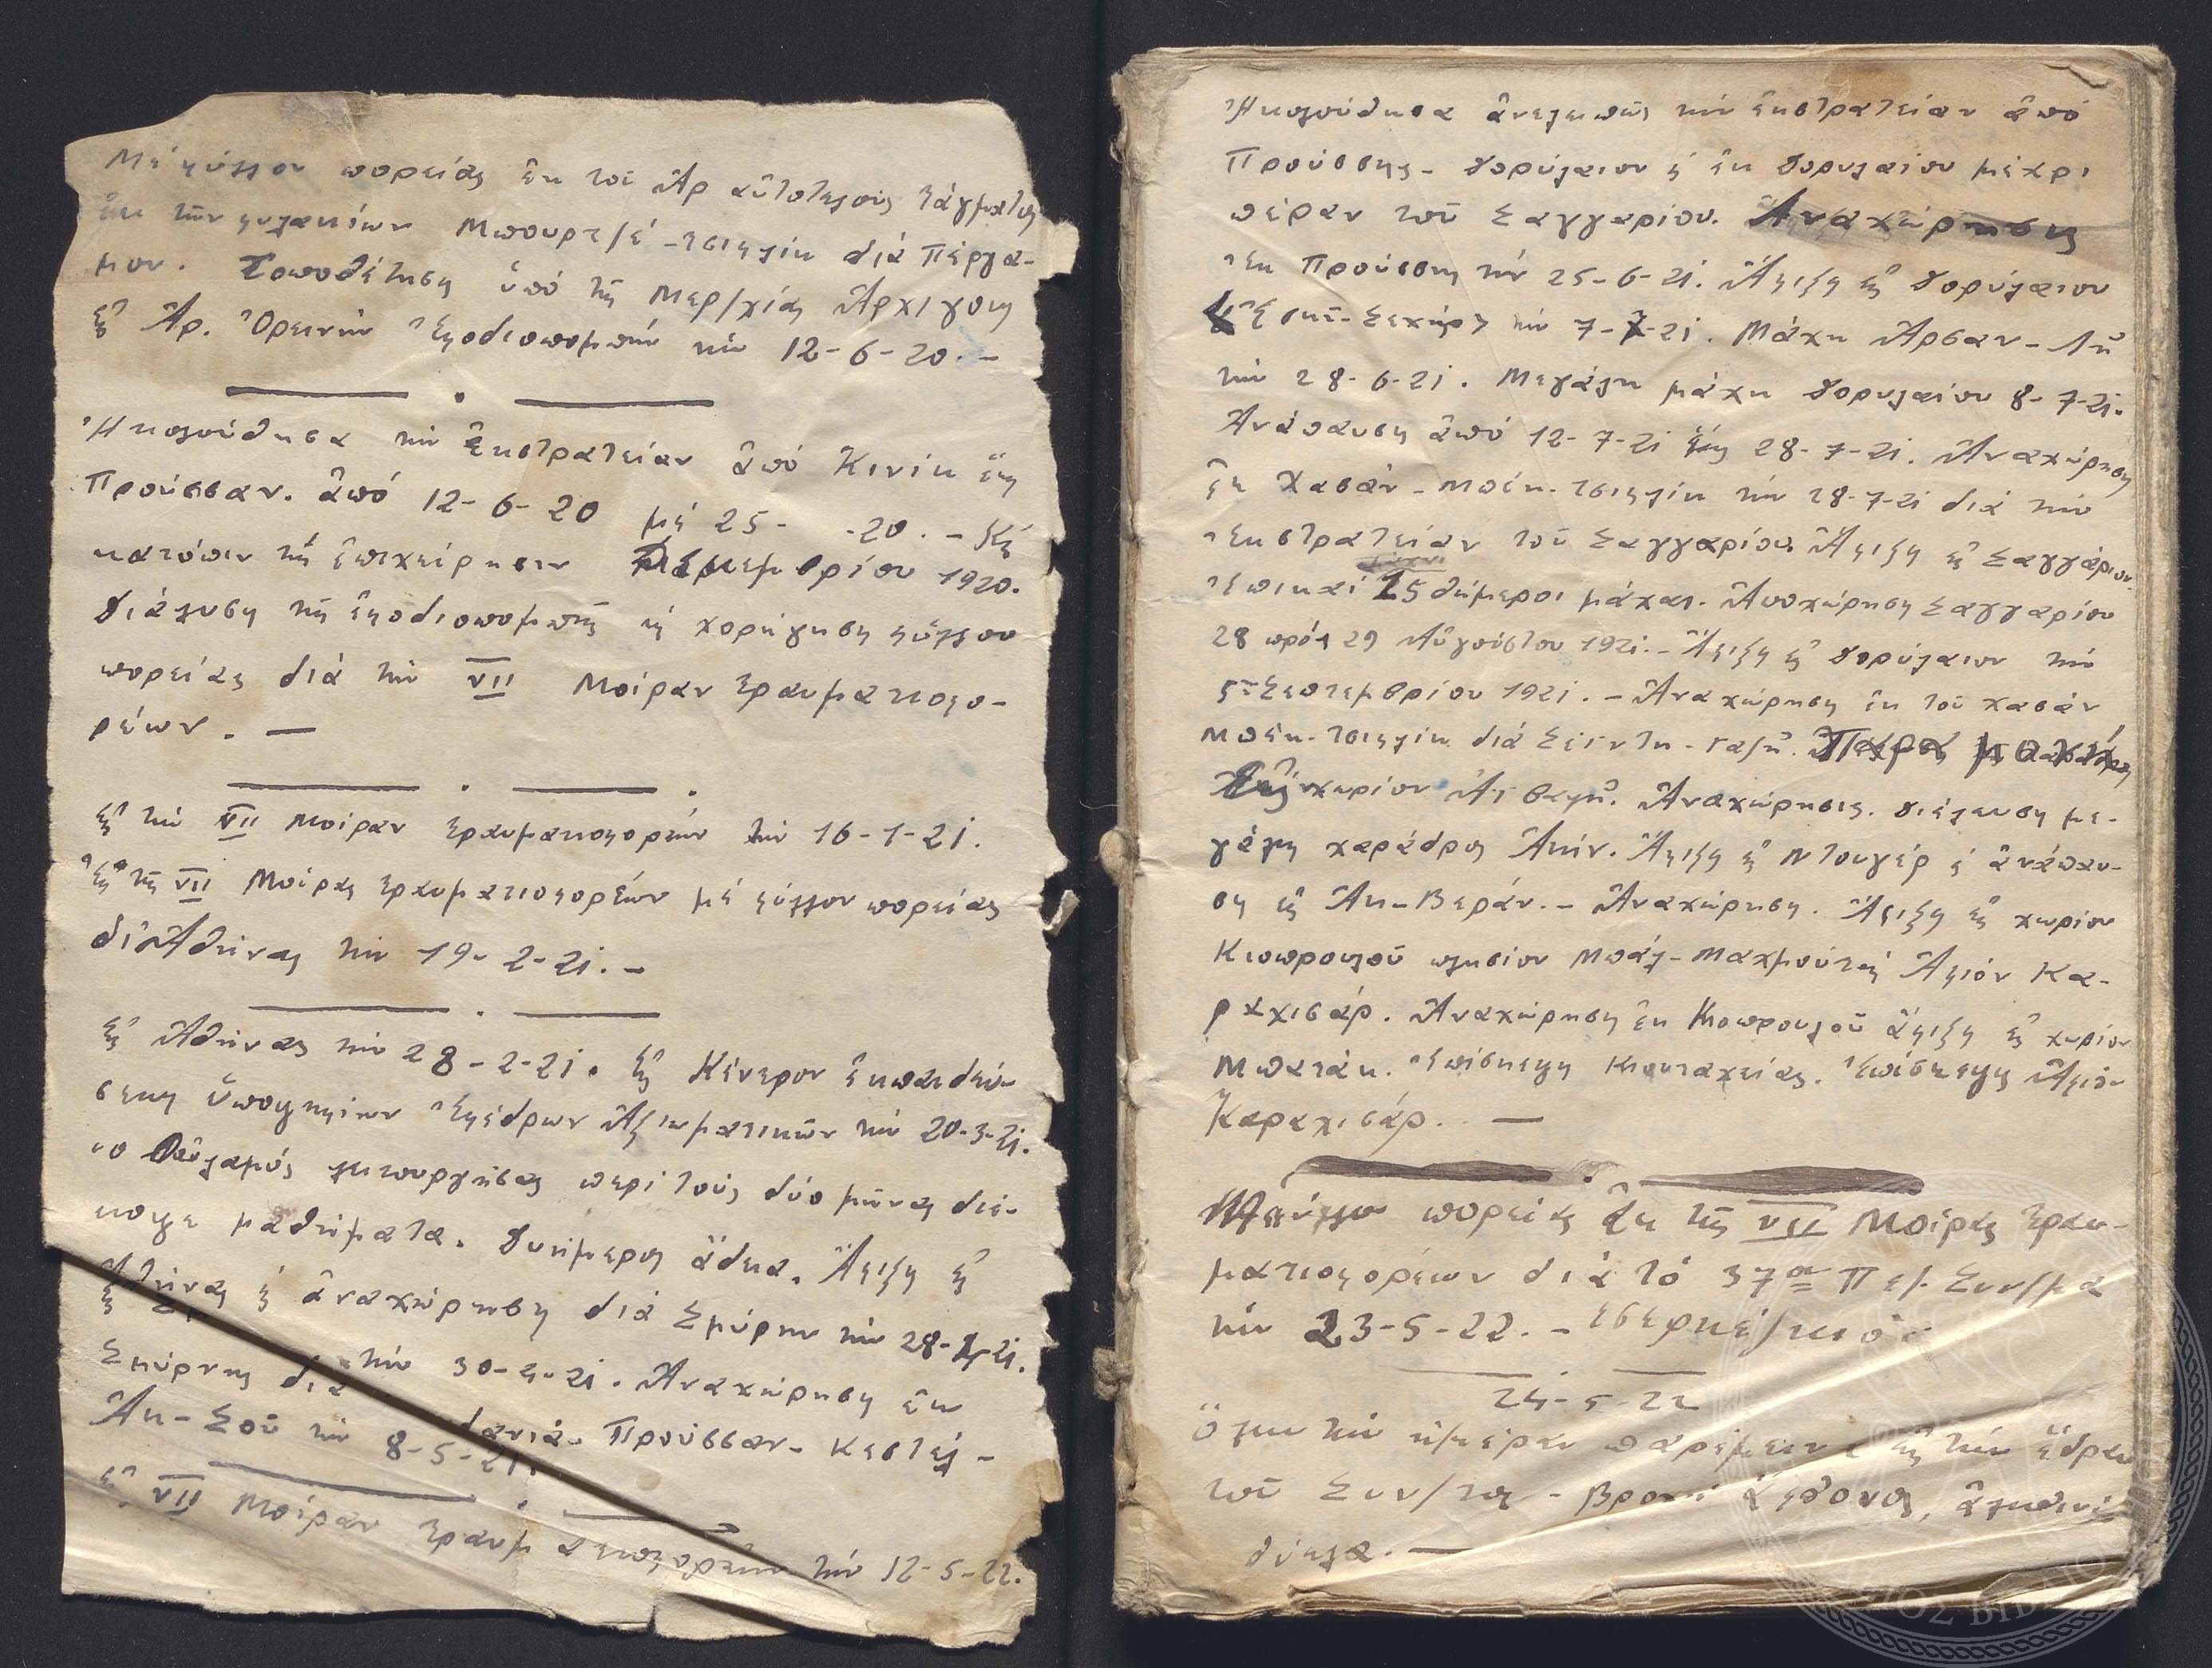 Μέ φύλλον πορείας ἐκ τοῦ Ἀρ αὐτοτελοῦς τάγματος
ἐκ τῶν φυλακίων Μπουρτζέ - τσιφλίκ διά Πέργα-
μον. Τοποθέτησις ὑπό τῆς Μερ/χίας Ἀρχι/γους
εἰς Ἀρ. Ὀρεινήν Ἐφοδιοπομπήν τήν 12-6-20. -
Ἠκολούθησα τήν ἐκστρατείαν ἀπό Κινίκ ἕως
Προύσσαν. ἀπό 12-6-20 μέ 25- -20. -
κατόπιν τήν ἐπιχείρησιν Δεκεμβρίου 1920.
Διάλυσις τῆς ἐφοδιοπομπῆς κ χορήγησις φύλλου
πορείας διά τήν VII Μοίραν Τραυματιοφο-
ρέων. —
εἰς τήν VII Μοίραν τραυματιοφορέων τήν 16-1-21.
Ἐκ τῆς VII Μοίρας τραυματιοφορέων μέ φύλλον πορείας
δι' Ἀθήνας τήν 19-2-21. -
εἰς Ἀθήνας τήν 28-2-21. εἰς Κέντρον ἐκπαιδεύ-
σεως ὑποψηφίων Ἐφέδρων Ἀξιωματικῶν τήν 20-3-21.
ὁ Οὐλαμός λειτουργήσας περί τούς δύο μῆνας διέ-
κοψε μαθήματα. Διήμερος ἄδεια. Ἄφιξις εἰς
Ἀθήνας κ ἀναχώρησις διά Σμύρνην τήν 28-4-21.
Σμύρνης διά τήν 30-4-21. Ἀναχώρησις ἐκ
Πάνορμα - Προύσσαν - Κεστέλ -
Ἀκ-Σοῦ τήν 8-5-21.
εἰς VII Μοίραν Τραυματιοφορέων τήν 12-5-22.
Ἠκολούθησα ἀνελλειπῶς τήν ἐκστρατείαν ἀπό
Προύσσης - Δορύλαιον κ ἐκ Δορυλαίου μέχρι
πέραν τοῦ Σαγγαρίου. Ἀναχώρησις
ἐκ Προύσσης τήν 25-6-21. Ἄφιξις εἰς Δορύλαιον
Ἐσκί-Σεχήρ τήν 7-7-21. Μάχη Ἀρσαν-Λῆ
τήν 28-6-21. Μεγάλη μάχη Δορυλαίου 8-7-21.
Ἀνάπαυσις ἀπό 12-7-21 ἕως 28-7-21. Ἀναχώρησις
ἐκ Χασάν-Μπέκ-τσιφλίκ τήν 28-7-21 διά τήν
ἐκστρατείαν τοῦ Σαγγαρίου. Ἄφιξις εἰς Σαγγάριον.
Ἐπικαί 15θήμεροι μάχαι. Ἀποχώρησις Σαγγαρίου
28 πρός 29 Αὐγούστου 1921. - Ἄφιξις εἰς Δορύλαιον τήν
5ην Σεπτεμβρίου 1921. - Ἀναχώρησις ἐκ τοῦ Χασάν
Μπέκ-τσιφλίκ διά Σεϊντῆ-Γαζῆ.
χωρίον Ἀχβαλῆ. Ἀναχώρησις. Διέλευσις με-
γάλης χαράδρας Ἀκίν. Ἄφιξις εἰς Ντουγέρ κ ἀνάπαυ-
σις εἰς Ἀκ-Βεράν. - Ἀναχώρησις. Ἄφιξις εἰς χωρίον
Κιοπρουλοῦ πλησίον Μπάλ-Μαχμούτ εἰς Ἀφιόν Κα-
ραχισάρ. Ἀναχώρησις ἐκ Κιοπρουλοῦ ἄφιξις εἰς χωρίον
Μπατάκ. Ἐπίσκεψις Κιουταχείας. Ἐπίσκεψις Ἀφιόν
Καραχισάρ. —
Φύλλον πορείας ἐκ τῆς VII Μοίρας τραυ-
ματιοφορέων διά τό 37ον Πεζ. Συν/μα
τήν 23-5-22. -
24-5-22
Ὅλην τήν ἡμέραν παρέμεινα εἰς τήν ἕδραν
τοῦ Συν/τος - Βροχή ἄφθονος, ἀληθινή
θύελλα. —